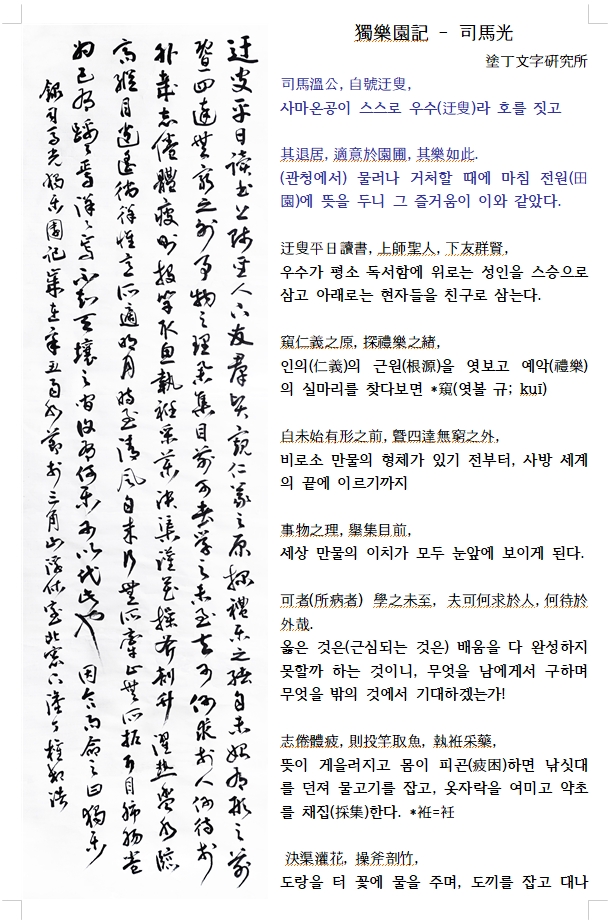 迂叟平日讀書上師聖人下友群賢窺仁義之原探禮樂之緒自未始有形之前
暨四達無窮之外事物之理擧集目前可者學之未至夫可何求於人何待於
外哉志倦體疲則投竿取魚執衽采藥決渠灌花操斧剖竹濯熱盥水臨
高縱目逍遙徜徉惟意所適明月時至淸風自來行無所牽止無所柅耳目肺腸卷
爲己有踽踽焉洋洋焉不知天壤之間復有何樂可以代此也 因合而命之曰獨樂
錄司馬光獨樂園記
獨樂園記 - 司馬光
塗丁文字研究所
司馬溫公, 自號迂叟,
사마온공이 스스로 우수(迂叟)라 호를 짓고
其退居, 適意於園圃, 其樂如此.
(관청에서) 물러나 거처할 때에 마침 전원(田
園)에 뜻을 두니 그 즐거움이 이와 같았다.
迂叟平日讀書, 上師聖人, 下友群賢,
우수가 평소 독서함에 위로는 성인을 스승으로
삼고 아래로는 현자들을 친구로 삼는다.
窺仁義之原, 探禮樂之緒,
인의(仁義)의 근원(根源)을 엿보고 예악(禮樂)
의 실마리를 찾다보면 *窺(엿볼 규; kuī)
自未始有形之前, 暨四達無窮之外,
비로소 만물의 형체가 있기 전부터, 사방 세계
의 끝에 이르기까지
事物之理, 擧集目前,
세상 만물의 이치가 모두 눈앞에 보이게 된다.
可者(所病者) 學之未至, 夫可何求於人, 何待於
外哉.
옳은 것은(근심되는 것은) 배움을 다 완성하지
못할까 하는 것이니, 무엇을 남에게서 구하며
무엇을 밖의 것에서 기대하겠는가!
志倦體疲, 則投竿取魚, 執袵采藥,
뜻이 게을러지고 몸이 피곤(疲困)하면 낚싯대
를 던져 물고기를 잡고, 옷자락을 여미고 약초
를 채집(採集)한다. *袵=衽
決渠灌花, 操斧剖竹,
도랑을 터 꽃에 물을 주며, 도끼를 잡고 대나